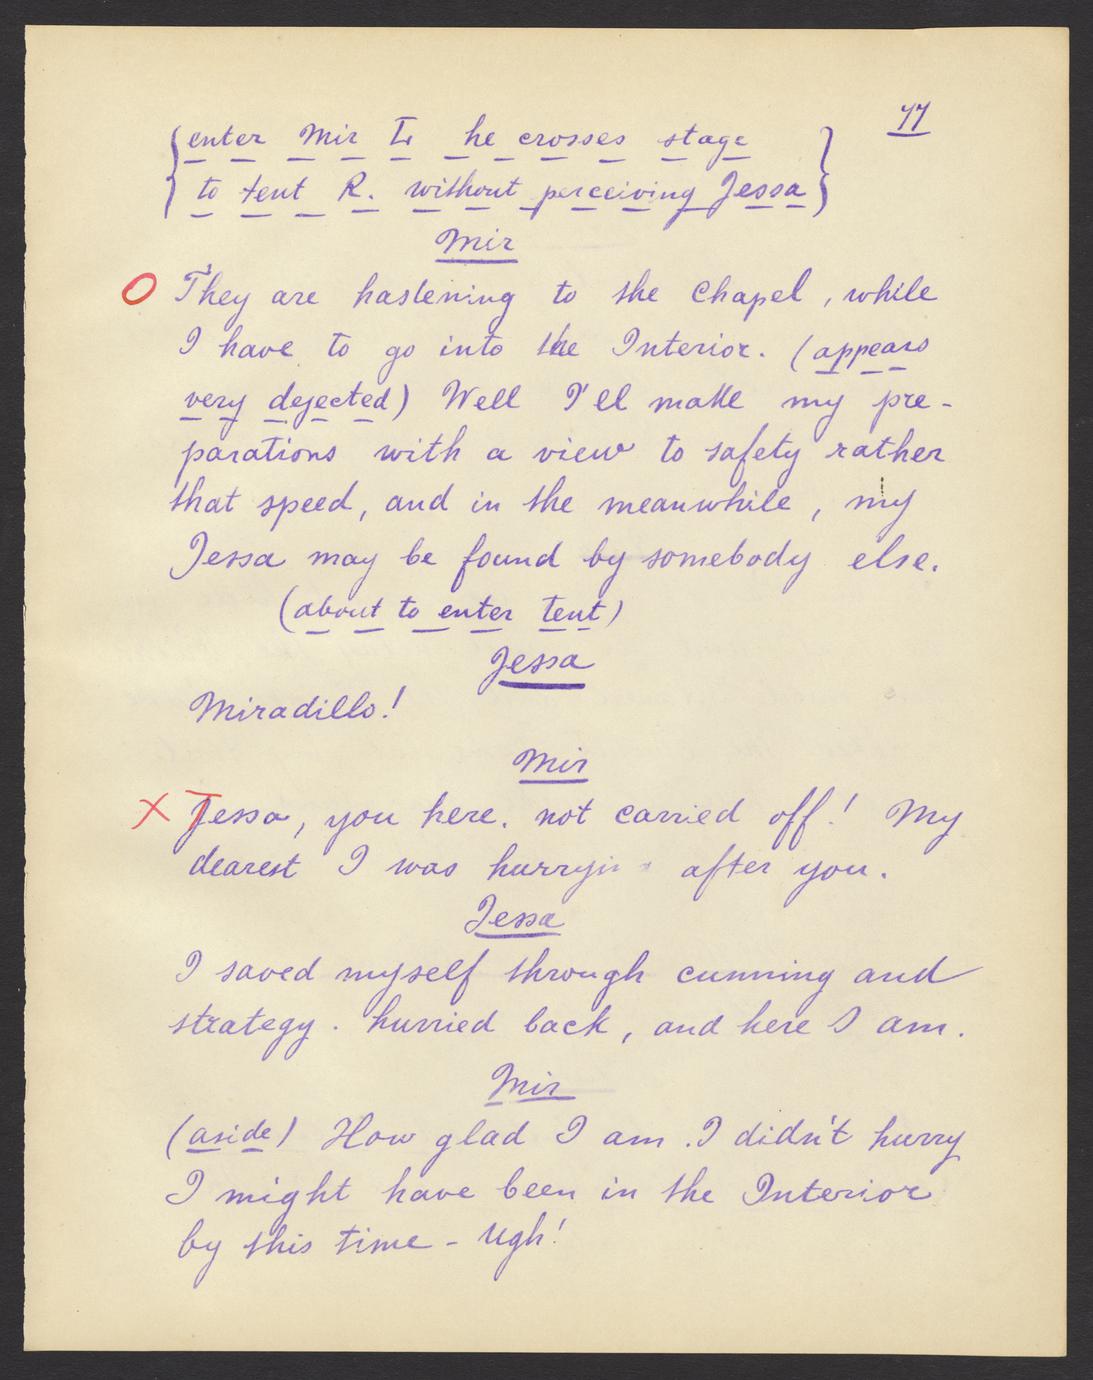 77
{enter Mir L he crosses stage
to tent R. without perceiving Jessa}
Mir
O They are hastening to the Chapel, while
I have to go into the Interior. (appears
very dejected) Well I'll make my pre-
parations with a view to safety rather
that speed, and in the meanwhile, my
Jessa may be found by somebody else.
(about to enter tent)
Jessa
Miradillo!
Mir
X Jessa, you here. not carried off! My
dearest I was hurryin after you.
Jessa
I saved myself through cunning and
strategy. hurried back, and here I am.
Mir
(aside) How glad I am. I didn't hurry
I might have been in the Interior
by this time - Ugh!